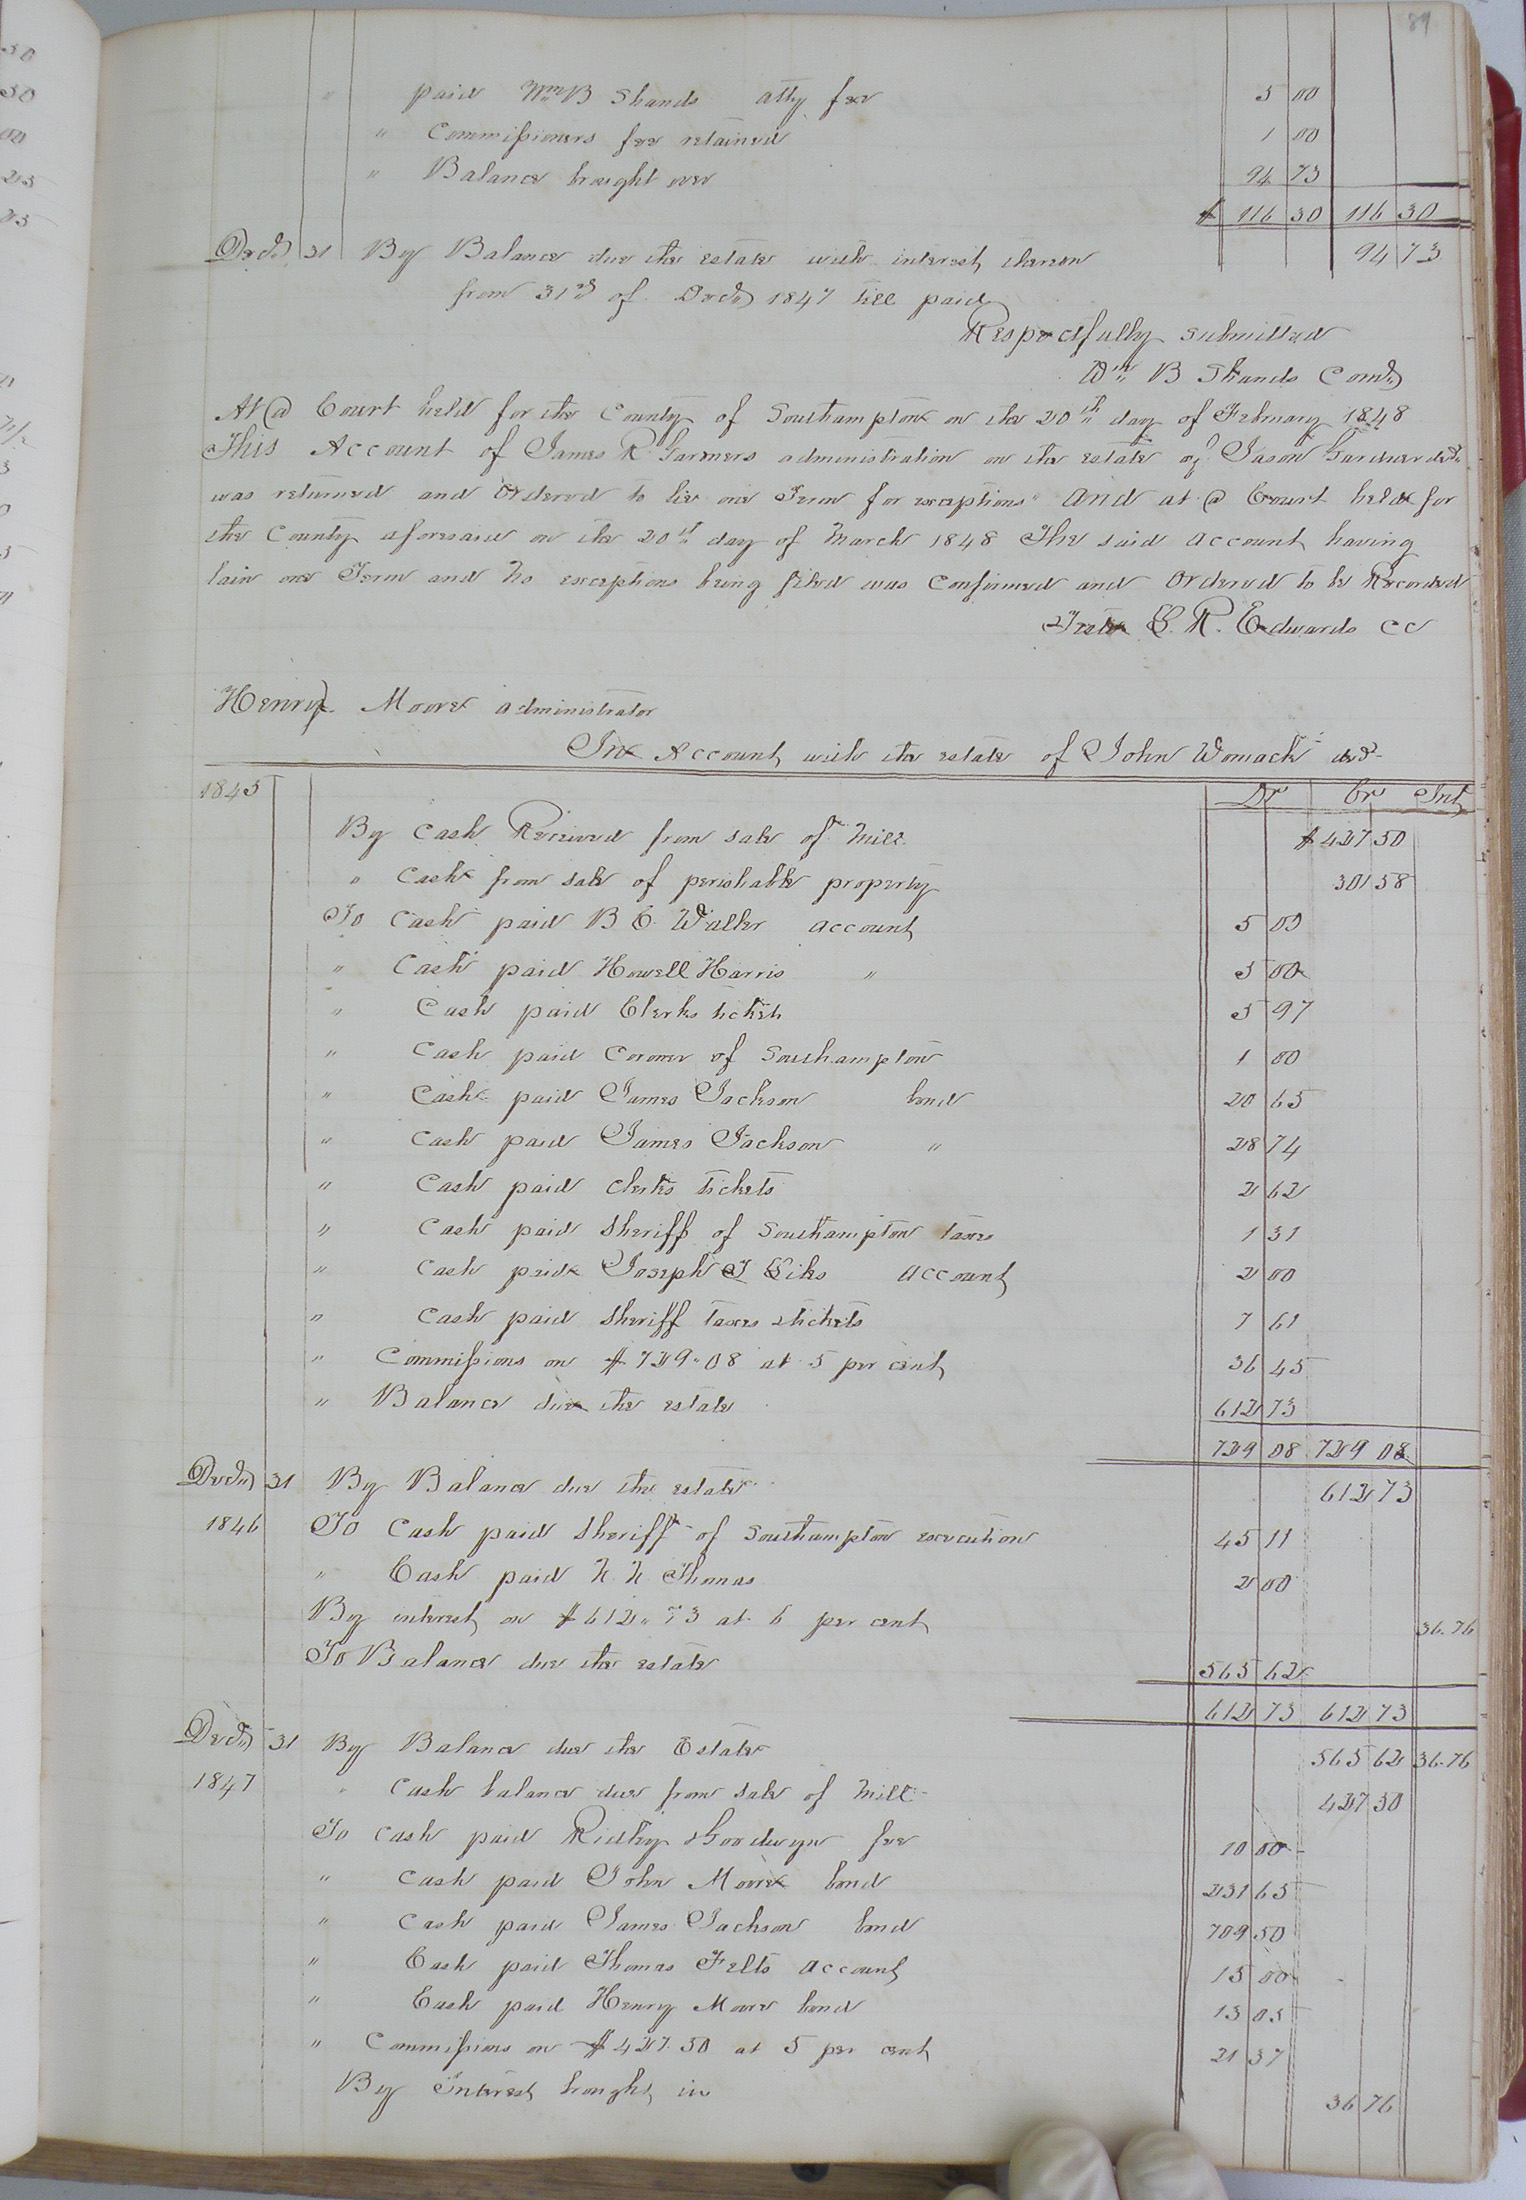 89
" paid Wm B Shands atty fee 5 00
" Commissioners fee retained 1 00
" Balance brought over 94 73
$ 116 30 116 30
Decr 31 By Balance due the estate with interest thereon 94 73
from 31st of Decr 1847 till paid
Respectfully submitted
Wm B Shands Comr
At a Court held for the County of Southampton on the 20th day of February 1848
This Account of James R. Garners administration on the estate of Jason Gardner decd
was returned and Ordered to lie one Term for exceptions and at a Court held for
the County aforesaid on the 20th day of March 1848 The said account having
lain one Term and No exceptions being filed was Confirmed and Ordered to be Recorded
Teste L. R. Edwards CC
Henry Moore administrator
In Account with the estate of John Womack decd
1845 Dr Cr Int
By Cash Received from sale of Mill $ 427 50
" Cash from sale of perishable property 301 58
To Cash paid B C Waller account 5 00
" Cash paid Howell Harris " 5 00
" Cash paid Clerks tickets 5 97
" Cash paid Coroner of Southampton 1 00
" Cash paid James Jackson bond 20 65
" Cash paid James Jackson " 28 74
" Cash paid clerks tickets 2 62
" Cash paid Sheriff of Southampton taxes 1 31
" Cash paid Joseph T account 2 00
" Cash paid Sheriff taxes & tickets 7 61
" Commissions on $729.08 at 5 per cent 36 45
" Balance due the estate 612 73
729 08 729 08
Decr 31 By Balance due the estate 612 73
1846 To Cash paid Sheriff of Southampton execution 45 11
" Cash paid N. N. Thomas 2 00
By interest on $612.73 at 6 per cent 36.76
To Balance due the estate 565 62
612 73 612 73
Decr 31 By Balance due the Estate 565 62 36.76
1847 " Cash balance due from sale of Mill 427 50
To Cash paid Ridley & Goodwyn fee 10 00
" Cash paid John Moore bond 231 65
" Cash paid James Jackson bond 709 50
" Cash paid Thomas Felts account 15 00
" Cash paid Henry Moore bond 13 05
" Commissions on $427.50 at 5 per cent 21 37
By Interest brought in 36 76